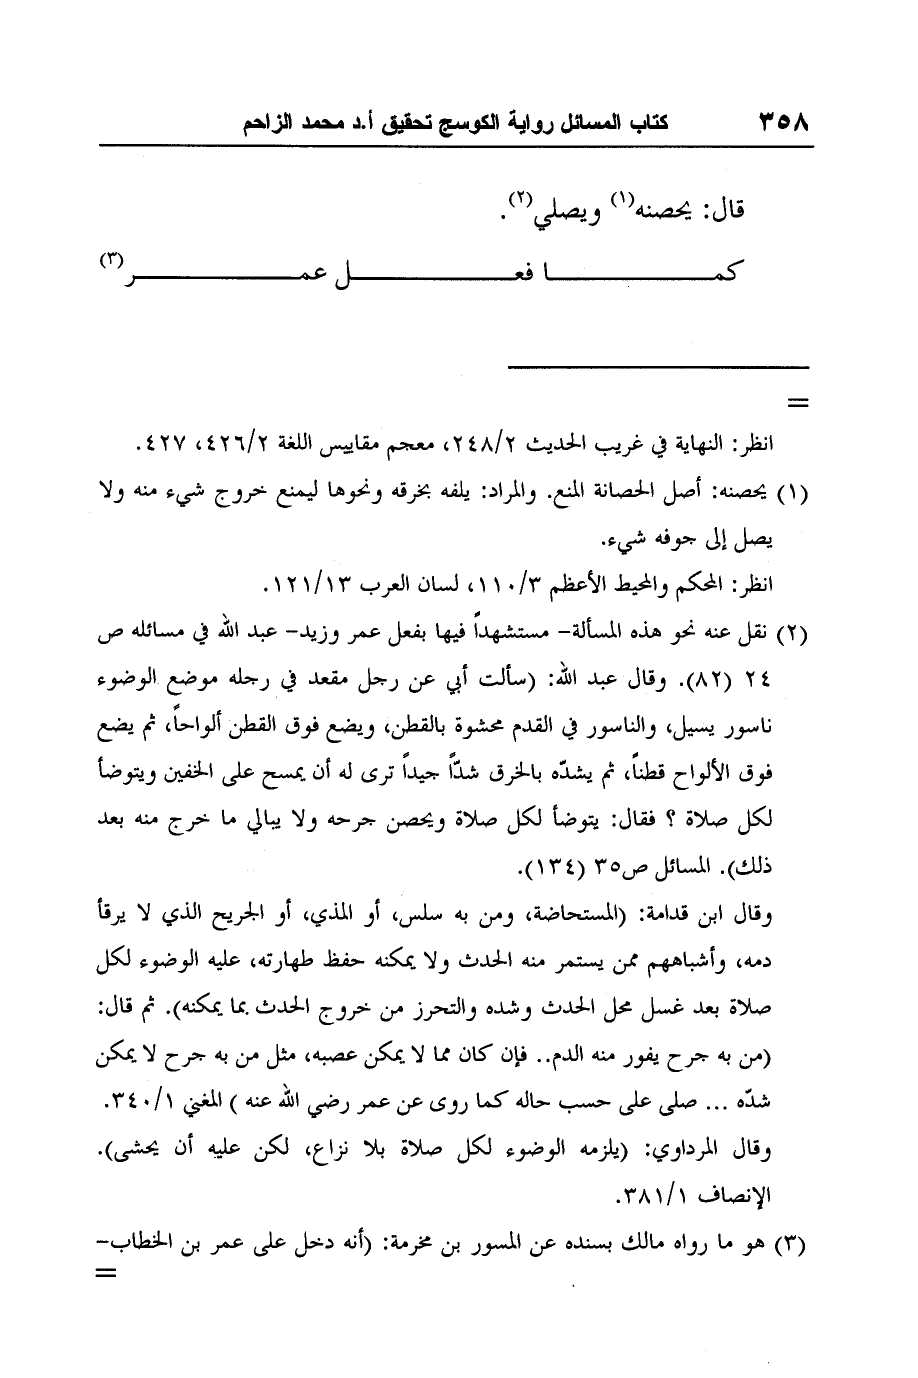 ٣٥٨ كتاب المسائل رواية الكوسج تحقيق أ.د محمد الزاحم
قال: يحصنه(١) ويصلي(٢).
كمـــا فعـــل عمـــر(٣)
=
انظر: النهاية في غريب الحديث ٢٤٨/٢، معجم مقاييس اللغة ٤٢٦/٢، ٤٢٧.
(١) يحصنه: أصل الحصانة المنع. والمراد: يلفه بخرقه ونحوها ليمنع خروج شيء منه ولا
يصل إلى جوفه شيء.
انظر: المحكم والمحيط الأعظم ١١٠/٣، لسان العرب ١٢١/١٣.
(٢) نقل عنه نحو هذه المسألة- مستشهداً فيها بفعل عمر وزيد- عبد الله في مسائله ص
٢٤ (٨٢). وقال عبد الله: (سألت أبي عن رجل مقعد في رجله موضع الوضوء
ناسور يسيل، والناسور في القدم محشوة بالقطن، ويضع فوق القطن ألواحاً، ثم يضع
فوق الألواح قطناً، ثم يشدّه بالخرق شدّاً جيداً ترى له أن يمسح على الخفين ويتوضأ
لكل صلاة ؟ فقال: يتوضأ لكل صلاة ويحصن جرحه ولا يبالي ما خرج منه بعد
ذلك). المسائل ص٣٥ (١٣٤).
وقال ابن قدامة: (المستحاضة، ومن به سلس، أو المذي، أو الجريح الذي لا يرقأ
دمه، وأشباههم ممن يستمر منه الحدث ولا يمكنه حفظ طهارته، عليه الوضوء لكل
صلاة بعد غسل محل الحدث وشده والتحرز من خروج الحدث بما يمكنه). ثم قال:
(من به جرح يفور منه الدم.. فإن كان مما لا يمكن عصبه، مثل من به جرح لا يمكن
شدّه ... صلى على حسب حاله كما روى عن عمر رضي الله عنه ) المغني ٣٤٠/١.
وقال المرداوي: (يلزمه الوضوء لكل صلاة بلا نزاع، لكن عليه أن يحشى).
الإنصاف ٣٨١/١.
(٣) هو ما رواه مالك بسنده عن المسور بن مخرمة: (أنه دخل على عمر بن الخطاب-
=